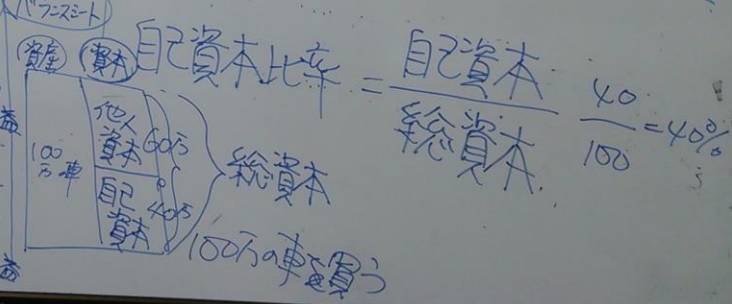 バランスシート
資産 資本
自己資本比率 = 自己資本 / 総資本
40 / 100 = 40%
100万 車
他人資本 60万
自己資本 40万
総資本
100万の車を買う
益
益